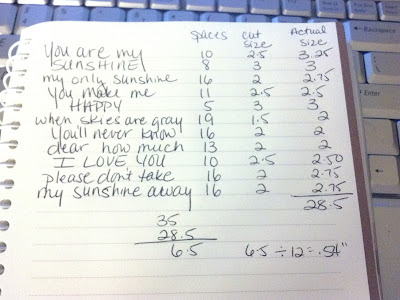 spaces cut size Actual size
You are my 10 2.5 3.25
SUNSHINE! 8 3 3
my only sunshine 16 2 2.75
You make me 11 2.5 2.5
HAPPY 5 3 3
when skies are gray 19 1.5 2
You'll never know 16 2 2
dear how much 13 2 2
I LOVE YOU 10 2.5 2.50
please don't take 16 2 2.75
my sunshine away 16 2 2.75
28.5
35
28.5
6.5 6.5 ÷ 12 = .54"
Backspace
Enter